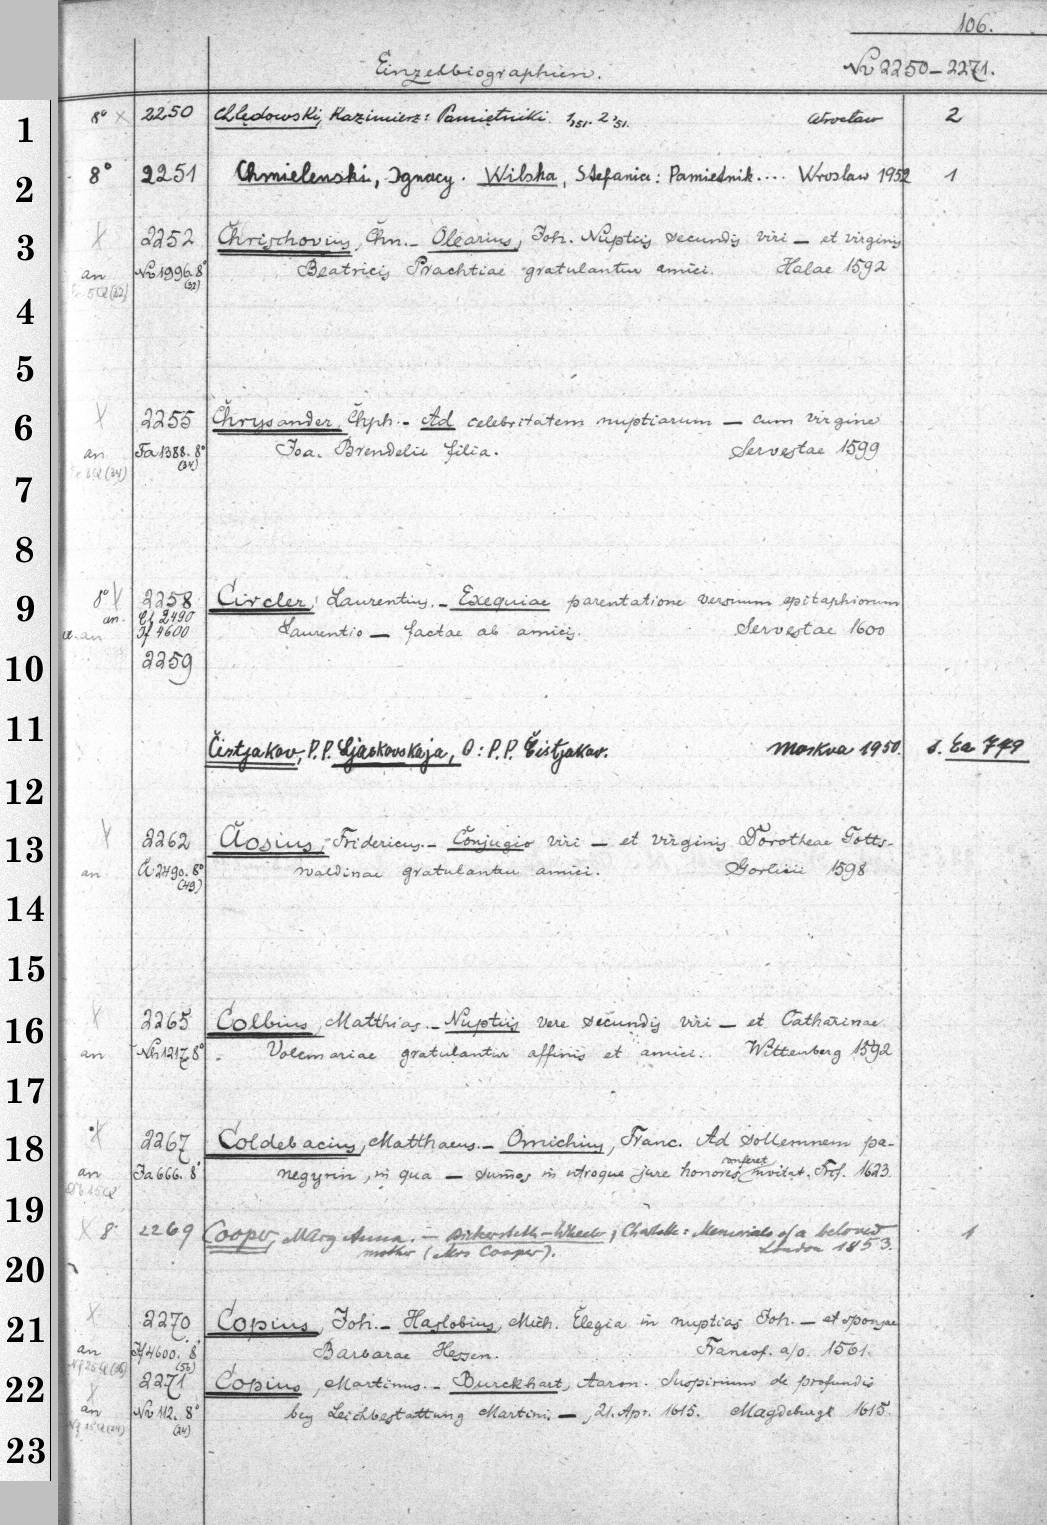 106.
Einzelbiographien.
Nr 2250-2271.
1 8° x 2250 Chłędowski, Kazimierz: Pamiętniki. 1,51. 2,51. Wrocław 2
2 8° 2251 Chmielenski, Ignacy. Wilska, Stefania: Pamietnik.... Wroslaw 1952 1
3 x 2252 Chrischovius, Chn. - Olearius, Joh. Nuptiis secundis viri - et virginis
an Nr 1996. 8° Beatricis Prachtiae gratulantur amici. Halae 1592
(32)
4
5
6 x 2255 Chrysander, Chph. - Ad celebritatem nuptiarum - cum virgine
an Ta 1388. 8° Joa. Brendelii filia. Servestae 1599
(34)
7
8
9 8° x 2258 Circler, Laurentius. - Exequiae parentatione versuum epitaphiorum
an. 2490
an 4600 Laurentio - factae ab amicis. Servestae 1600
10 2259
11 Čistjakov, P.P. Ljaskovskaja, O: P.P. Čistjakov. Moskva 1950. s. Ea 749
12
13 2262 Cosius, Fridericus. - Conjugio viri - et virginis Dorotheae Totts-
an 2490. 8° waldinae gratulantur amici. Gorlicii 1598
(49)
14
15
16 x 2265 Colbius, Matthias. - Nuptiis vere secundis viri - et Catharinae
an Nh 1217. 8° Volcmariae gratulantur affinis et amici. Wittenberg 1592
17
18 x 2267 Coldebacius, Matthaeus. - Omichius, Franc. Ad sollemnem pa-
conferet
an Ja 666. 8° negyrin, in qua - sumos in utroque jure honores invitat. Frf. 1623.
19 x 8° 2269 Cooper, Mary Anna. - Bickersteth-Wheeler, Charlotte: Memorials of a beloved 1
mother (Mrs Cooper). London 1853.
20
21 x 2270 Copius, Joh. - Haslobius, Mich. Elegia in nuptias Joh. - et sponsae
an 4600. 8° Barbarae Hessen. Francof. a/o. 1561.
(56)
22 x 2271 Copius, Martinus. - Burckhart, Aaron. Suspirium de profundis
an Nr 112. 8° bey Leichbestattung Martini -, 21. Apr. 1615. Magdeburgk 1615.
(24)
23